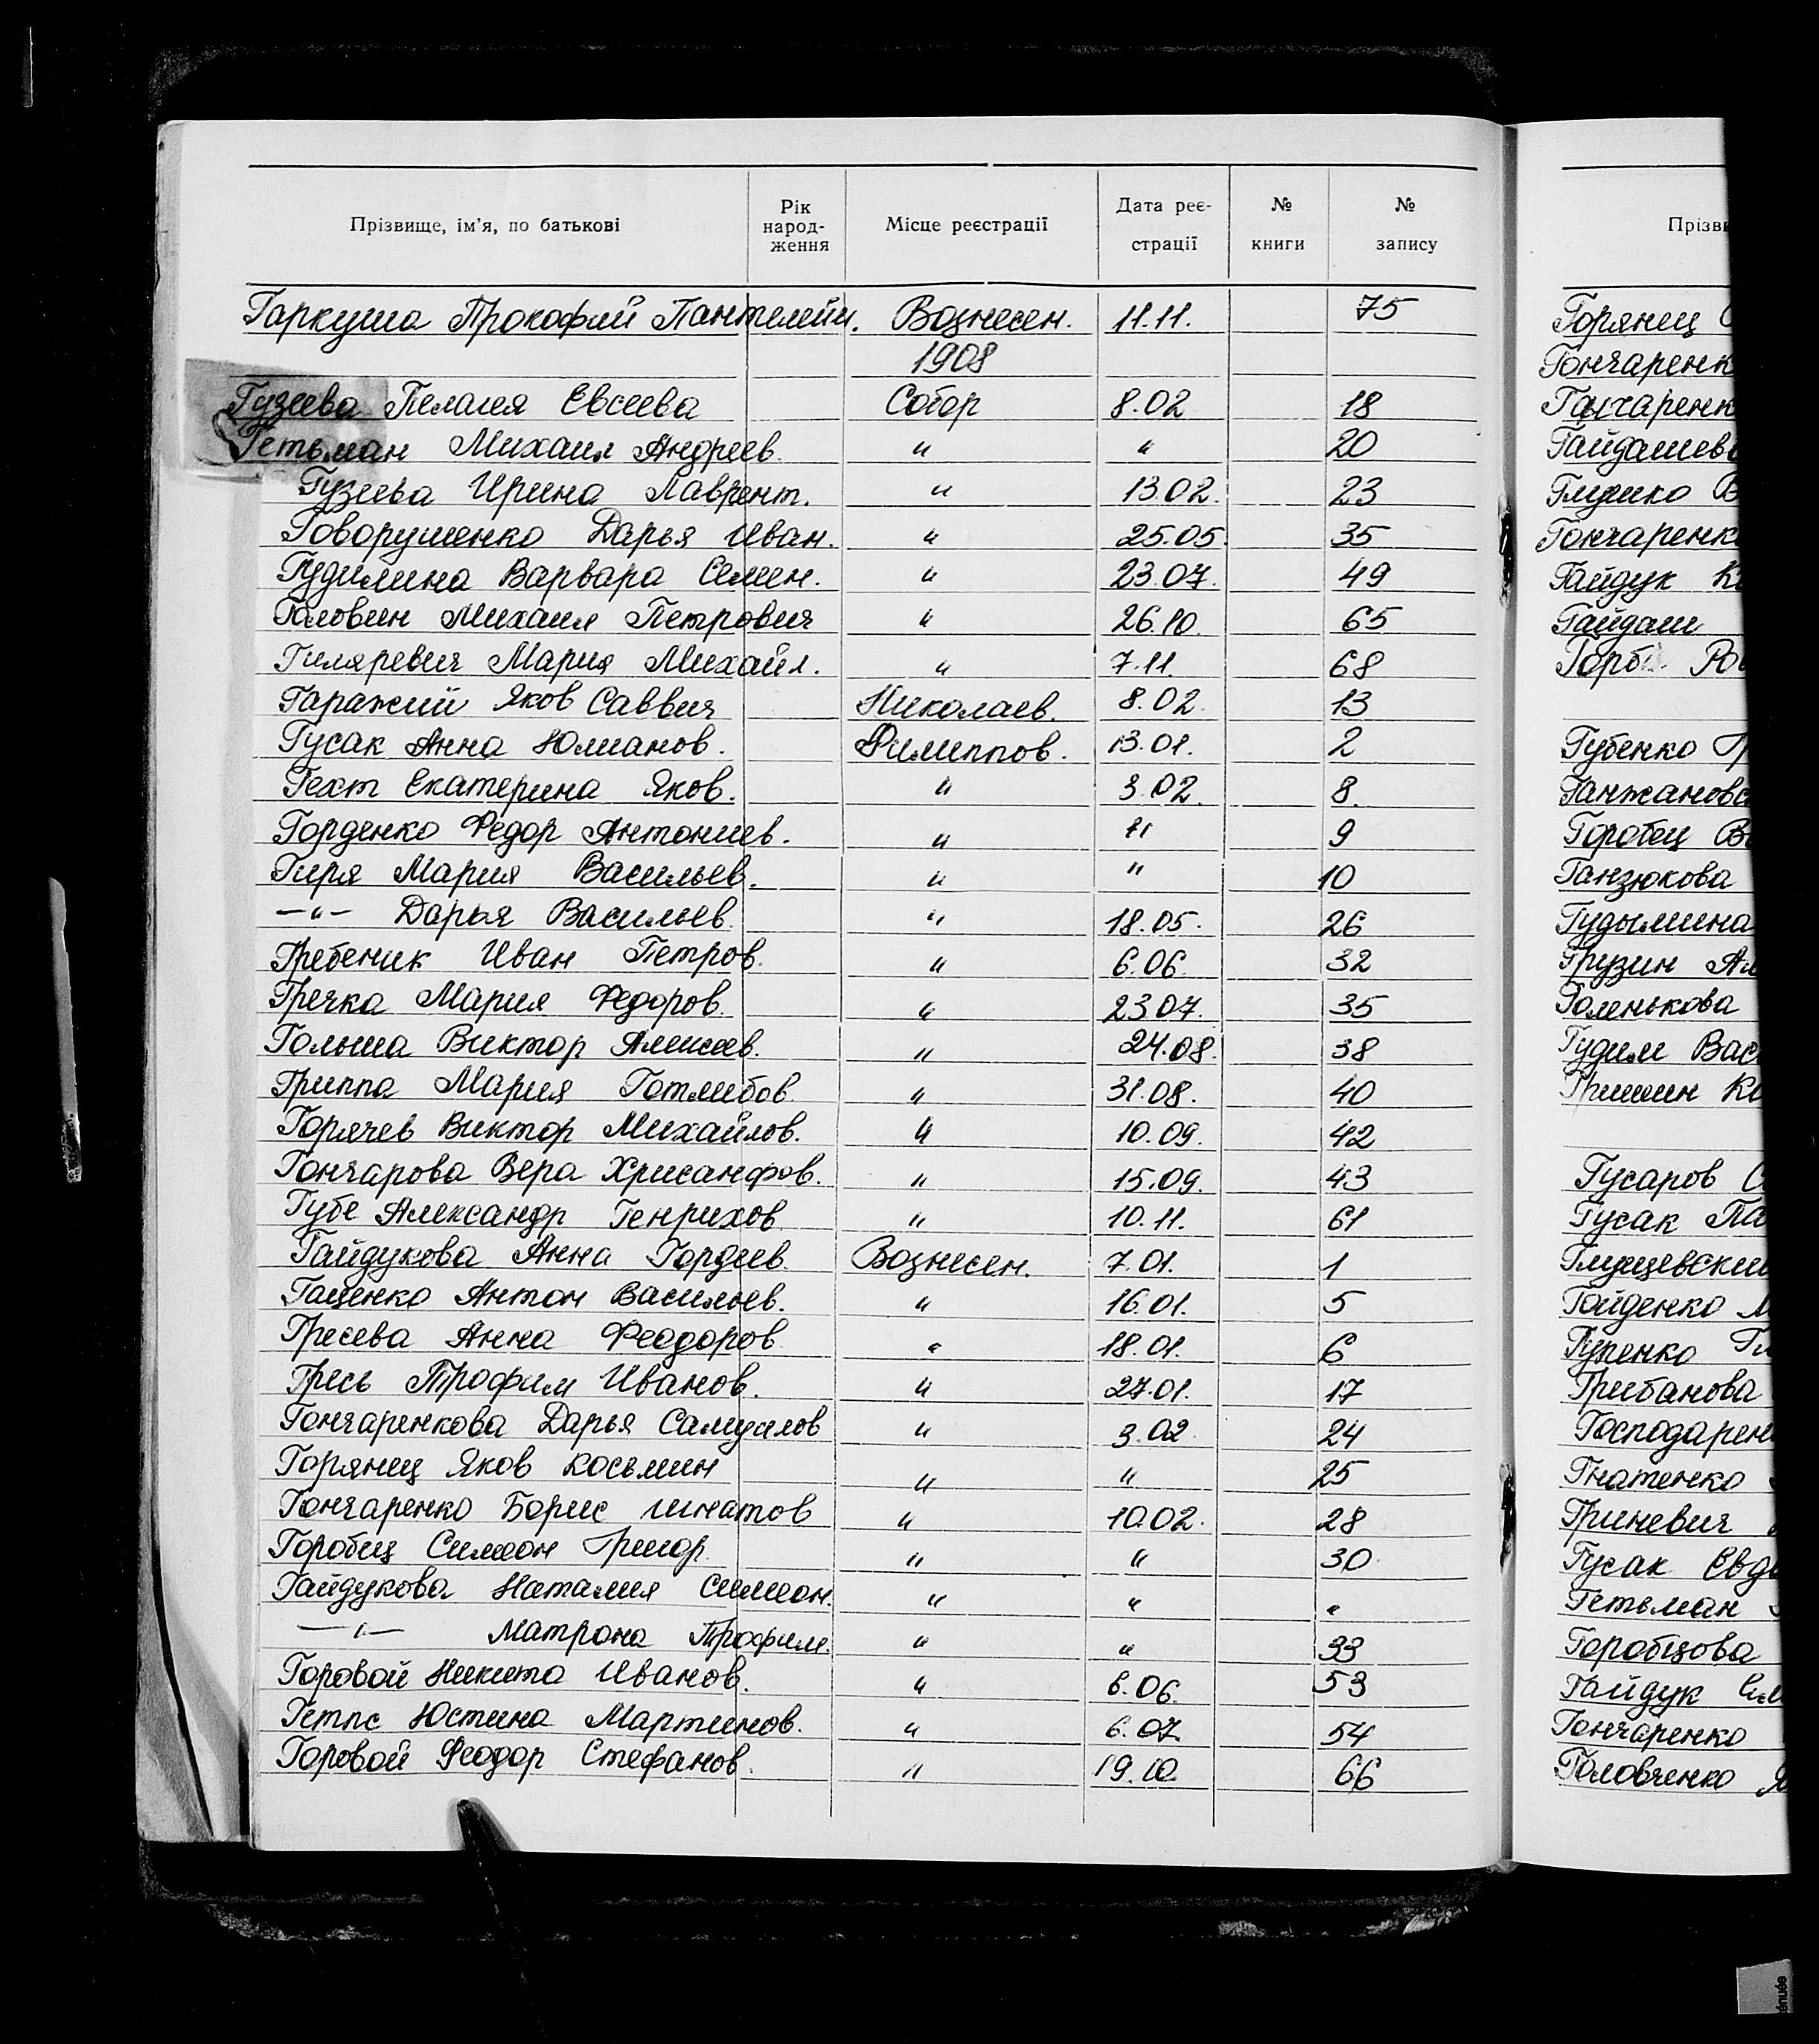 Прізвище, ім'я, по батькові Рік народ-ження Місце реєстрації Дата реє-страції № книги № запису
Гаркуша Прокофий Пантелейм. Вознесен. 11.11. 75
1908
Гузеева Пелагея Евсеева Собор 8.02 18
Гетьман Михаил Андреев. " " 20
Гузеева Ирина Лаврент. " 13.02. 23
Говорушенко Дарья Иван. " 25.05. 35
Гудилина Варвара Семен. " 23.07. 49
Головин Михаил Петрович " 26.10. 65
Гиляревич Мария Михайл. " 7.11. 68
Гаражий Яков Саввич Николаев. 8.02. 13
Гусак Анна Юлианов. Филиппов. 13.01. 2
Гехт Екатерина Яков. " 3.02. 8.
Горденко Федор Антониев. " " 9
Гиря Мария Васильев. " " 10
—"— Дарья Васильев. " 18.05. 26
Гребеник Иван Петров. " 6.06. 32
Гречка Мария Федоров. " 23.07. 35
Гольша Виктор Алексеев. " 24.08. 38
Гриппа Мария Готлибов. " 31.08. 40
Горячев Виктор Михайлов. " 10.09. 42
Гончарова Вера Хрисанфов. " 15.09. 43
Губе Александр Генрихов " 10.11. 61
Гайдукова Анна Гордеев. Вознесен. 7.01. 1
Гащенко Антон Васильев. " 16.01. 5
Гресева Анна Феодоров. " 18.01. 6
Гресь Трофим Иванов. " 27.01. 17
Гончаренкова Дарья Самуилов " 3.02. 24
Горянец Яков Косьмин " " 25
Гончаренко Борис Игнатов " 10.02. 28
Горобец Симеон Григор. " " 30
Гайдукова Наталия Симеон. " " "
—"— Матрона Трофим. " " 33
Горовой Никита Иванов. " 6.06. 53
Гетпс Юстина Мартинов. " 6.07. 54
Горовой Феодор Стефанов. " 19.10. 66
Прізви
Горянец
Гончаренк
Гончаренк
Гайдашев
Глушко В
Гончаренк
Гайдук К
Гайдаш
Горб
Губенко Г
Ганжановс
Горобец В
Ганзюкова
Гудылина
Грузин Ал
Голенькова
Гудим Вас
Гришин К
Гусаров С
Гусак Па
Глущевский
Гайденко М
Гуренко
Грибанова
Господарен
Гнатенко
Гриневич
Гусак Евд
Гетьман
Горобцова
Гайдук Сим
Гончаренко
Головченко Я